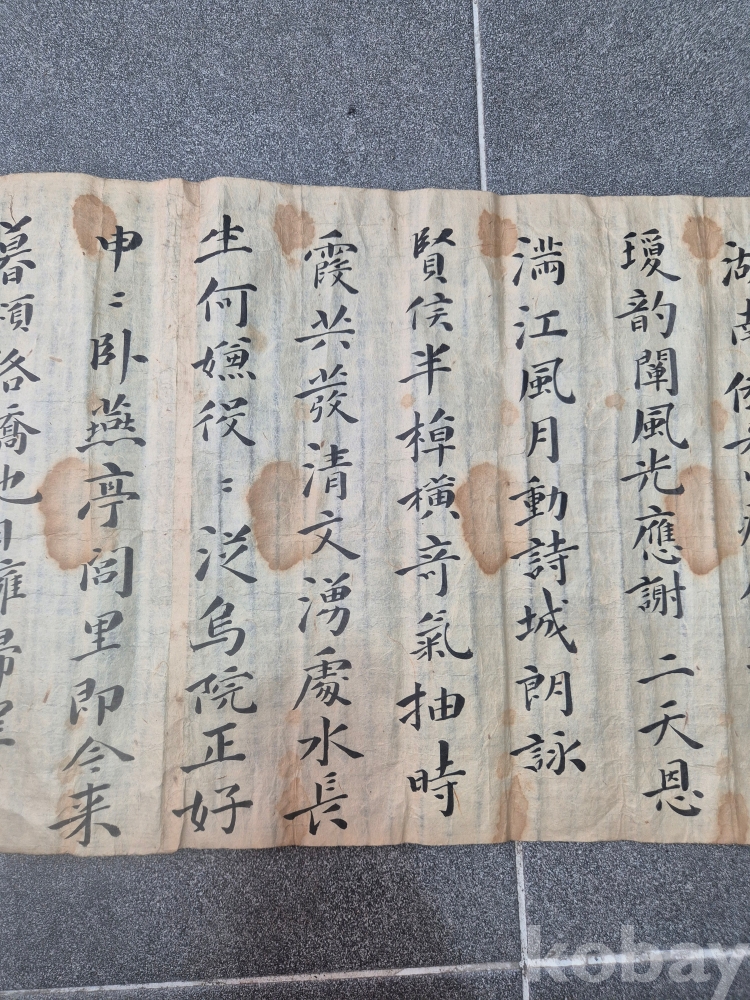 湖南
瓊韵闡風光應謝二天恩
満江風月動詩城朗詠
賢侯半棹橫奇氣抽時
霞共發清文湧處水長
生何嫌役〻泛烏院正好
申〻卧燕亭閭里即今来
暮須洛喬也
kobay